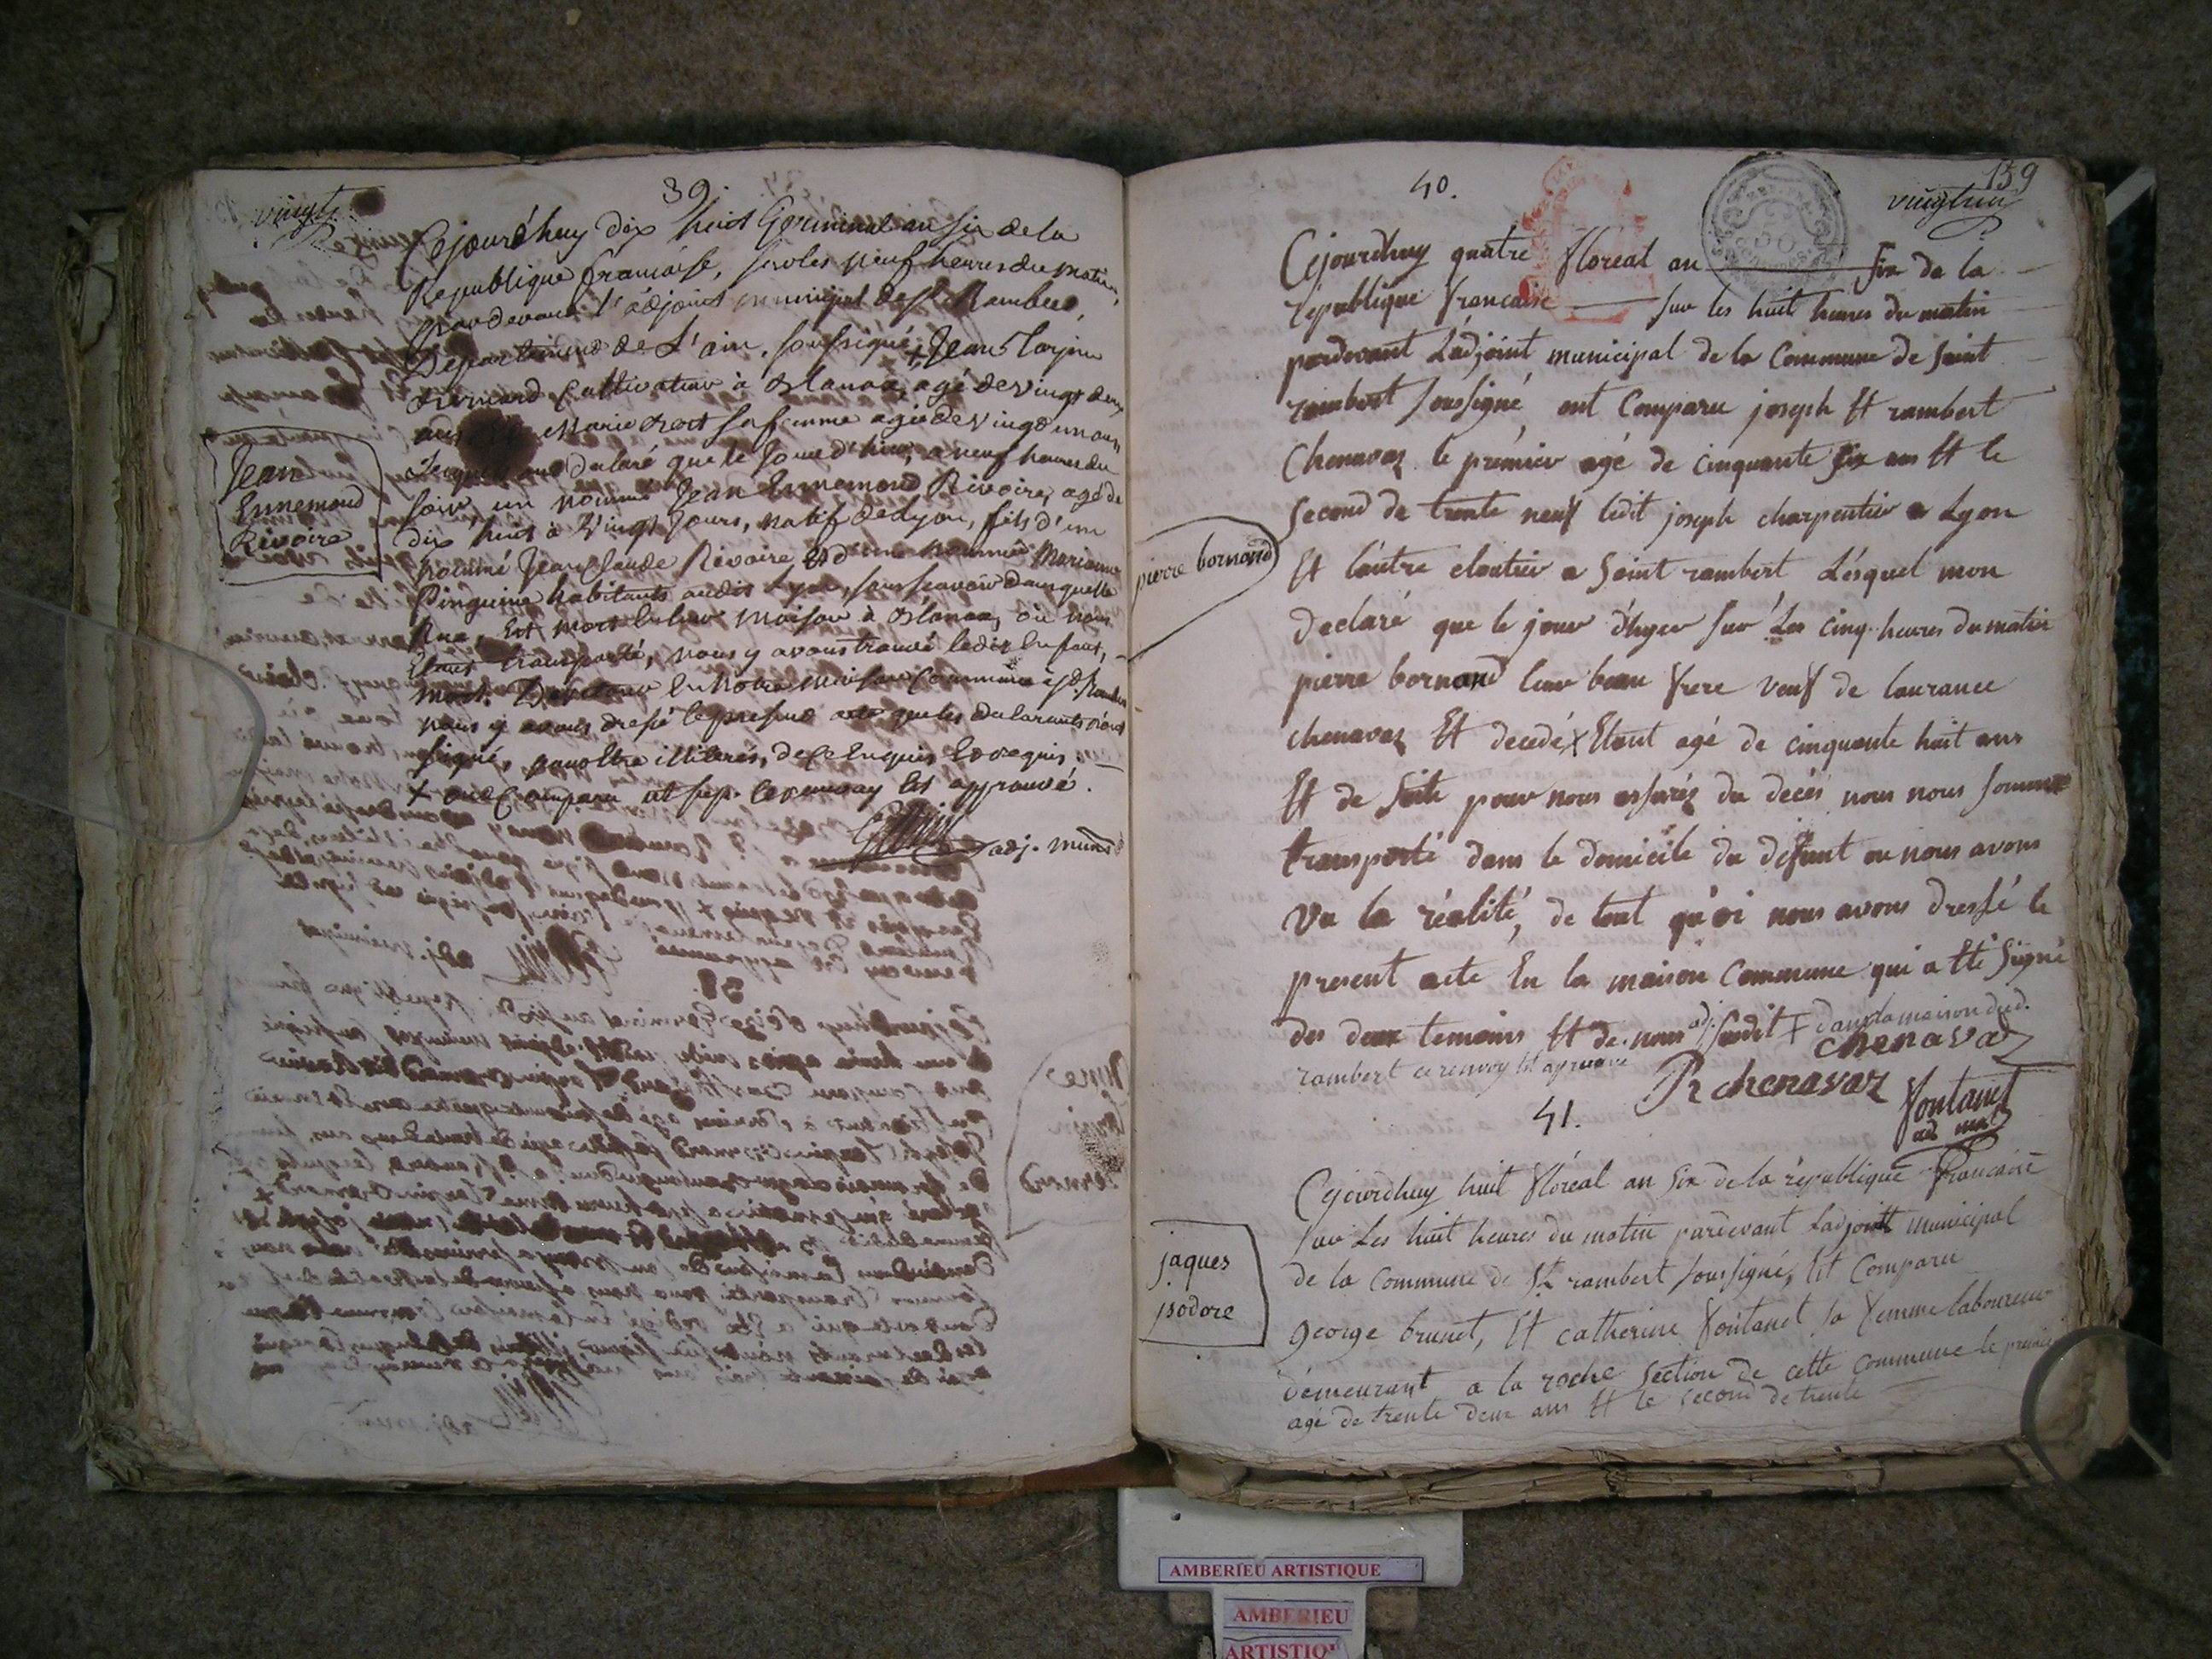 vingt
39
Cejourd'huy dix huit Germinal an six de la
Republique francaise, sur les neuf heures du matin,
pardevant l'adjoint municipal de St Rambert,
Departement de L'ain, soussigné, + Jean
cultivateur à Blanaz, agé de vingt deux
ans Marie sa femme agée de vingt un ans
Lesquels ont declaré que le jour d'hier, a neuf heures du
soir, un nommé Jean Ennemond Rivoire, agé de
dix huit à vingt jours, natif de Lyon, fils d'un
nommé Jean Claude Rivoire et d'une nommée Marianne
Pinguina habitants audit Lyon, sans scavoir dans quelle
Rue, Est mort en leur maison à Blanaz, où nous
Etant transporté, nous y avons trouvé ledit Enfant,
mort. De retour en notre maison commune a St Rambert
nous y avons dressé le present acte que les declarants n'ont
signé, pour être illiterés, de ce enquis et requis.
+ ont comparu
le renvoy est approuvé.
adj. munal
Jean
Ennemond
Rivoire
40.
159
vingtun
Cejourdhuy quatre floréal an six de la
république francaise sur les huit heures du matin
pardevant L'adjoint municipal de la Commune de Saint
rambert soussigné, ont Comparu joseph Et rambert
Chenavaz le prémier agé de cinquante six ans Et le
second de trente neuf ledit joseph charpentier a Lyon
Et l'autre cloutier a Saint rambert Lésquel mon
declaré que le jour d'hyer sur Les cinq heures du matin
pierre bornand leur beau frere veuf de laurance
chenavaz Et decedé, X Etant agé de cinquante huit ans
Et de Suite pour nous assurés du decés nous nous sommes
transporté dans le domicile du défunt ou nous avons
Vu la réalité, de tout qu'oi nous avons dressé le
present acte En la maison Commune qui a Eté Signé
des deux temoins Et de nous adj. susdit X dans la maison dud.
rambert ce renvoy Est aprouvé
chenavaz
R chenavaz
fontanel
ad mal
pierre bornand
41.
Cejourdhuy huit floréal an six de la république francaise
sur Les huit heures du matin pardevant Ladjoint municipal
de la Commune de St rambert soussigné, Et Comparu
george brunet, Et catherine fontanel sa femme laboureur
demeurant a la roche section de cette commune le premier
agé de trente deux ans Et le second de trente
jaques
isodore
AMBERIEU ARTISTIQUE
AMBERIEU
ARTISTIQU